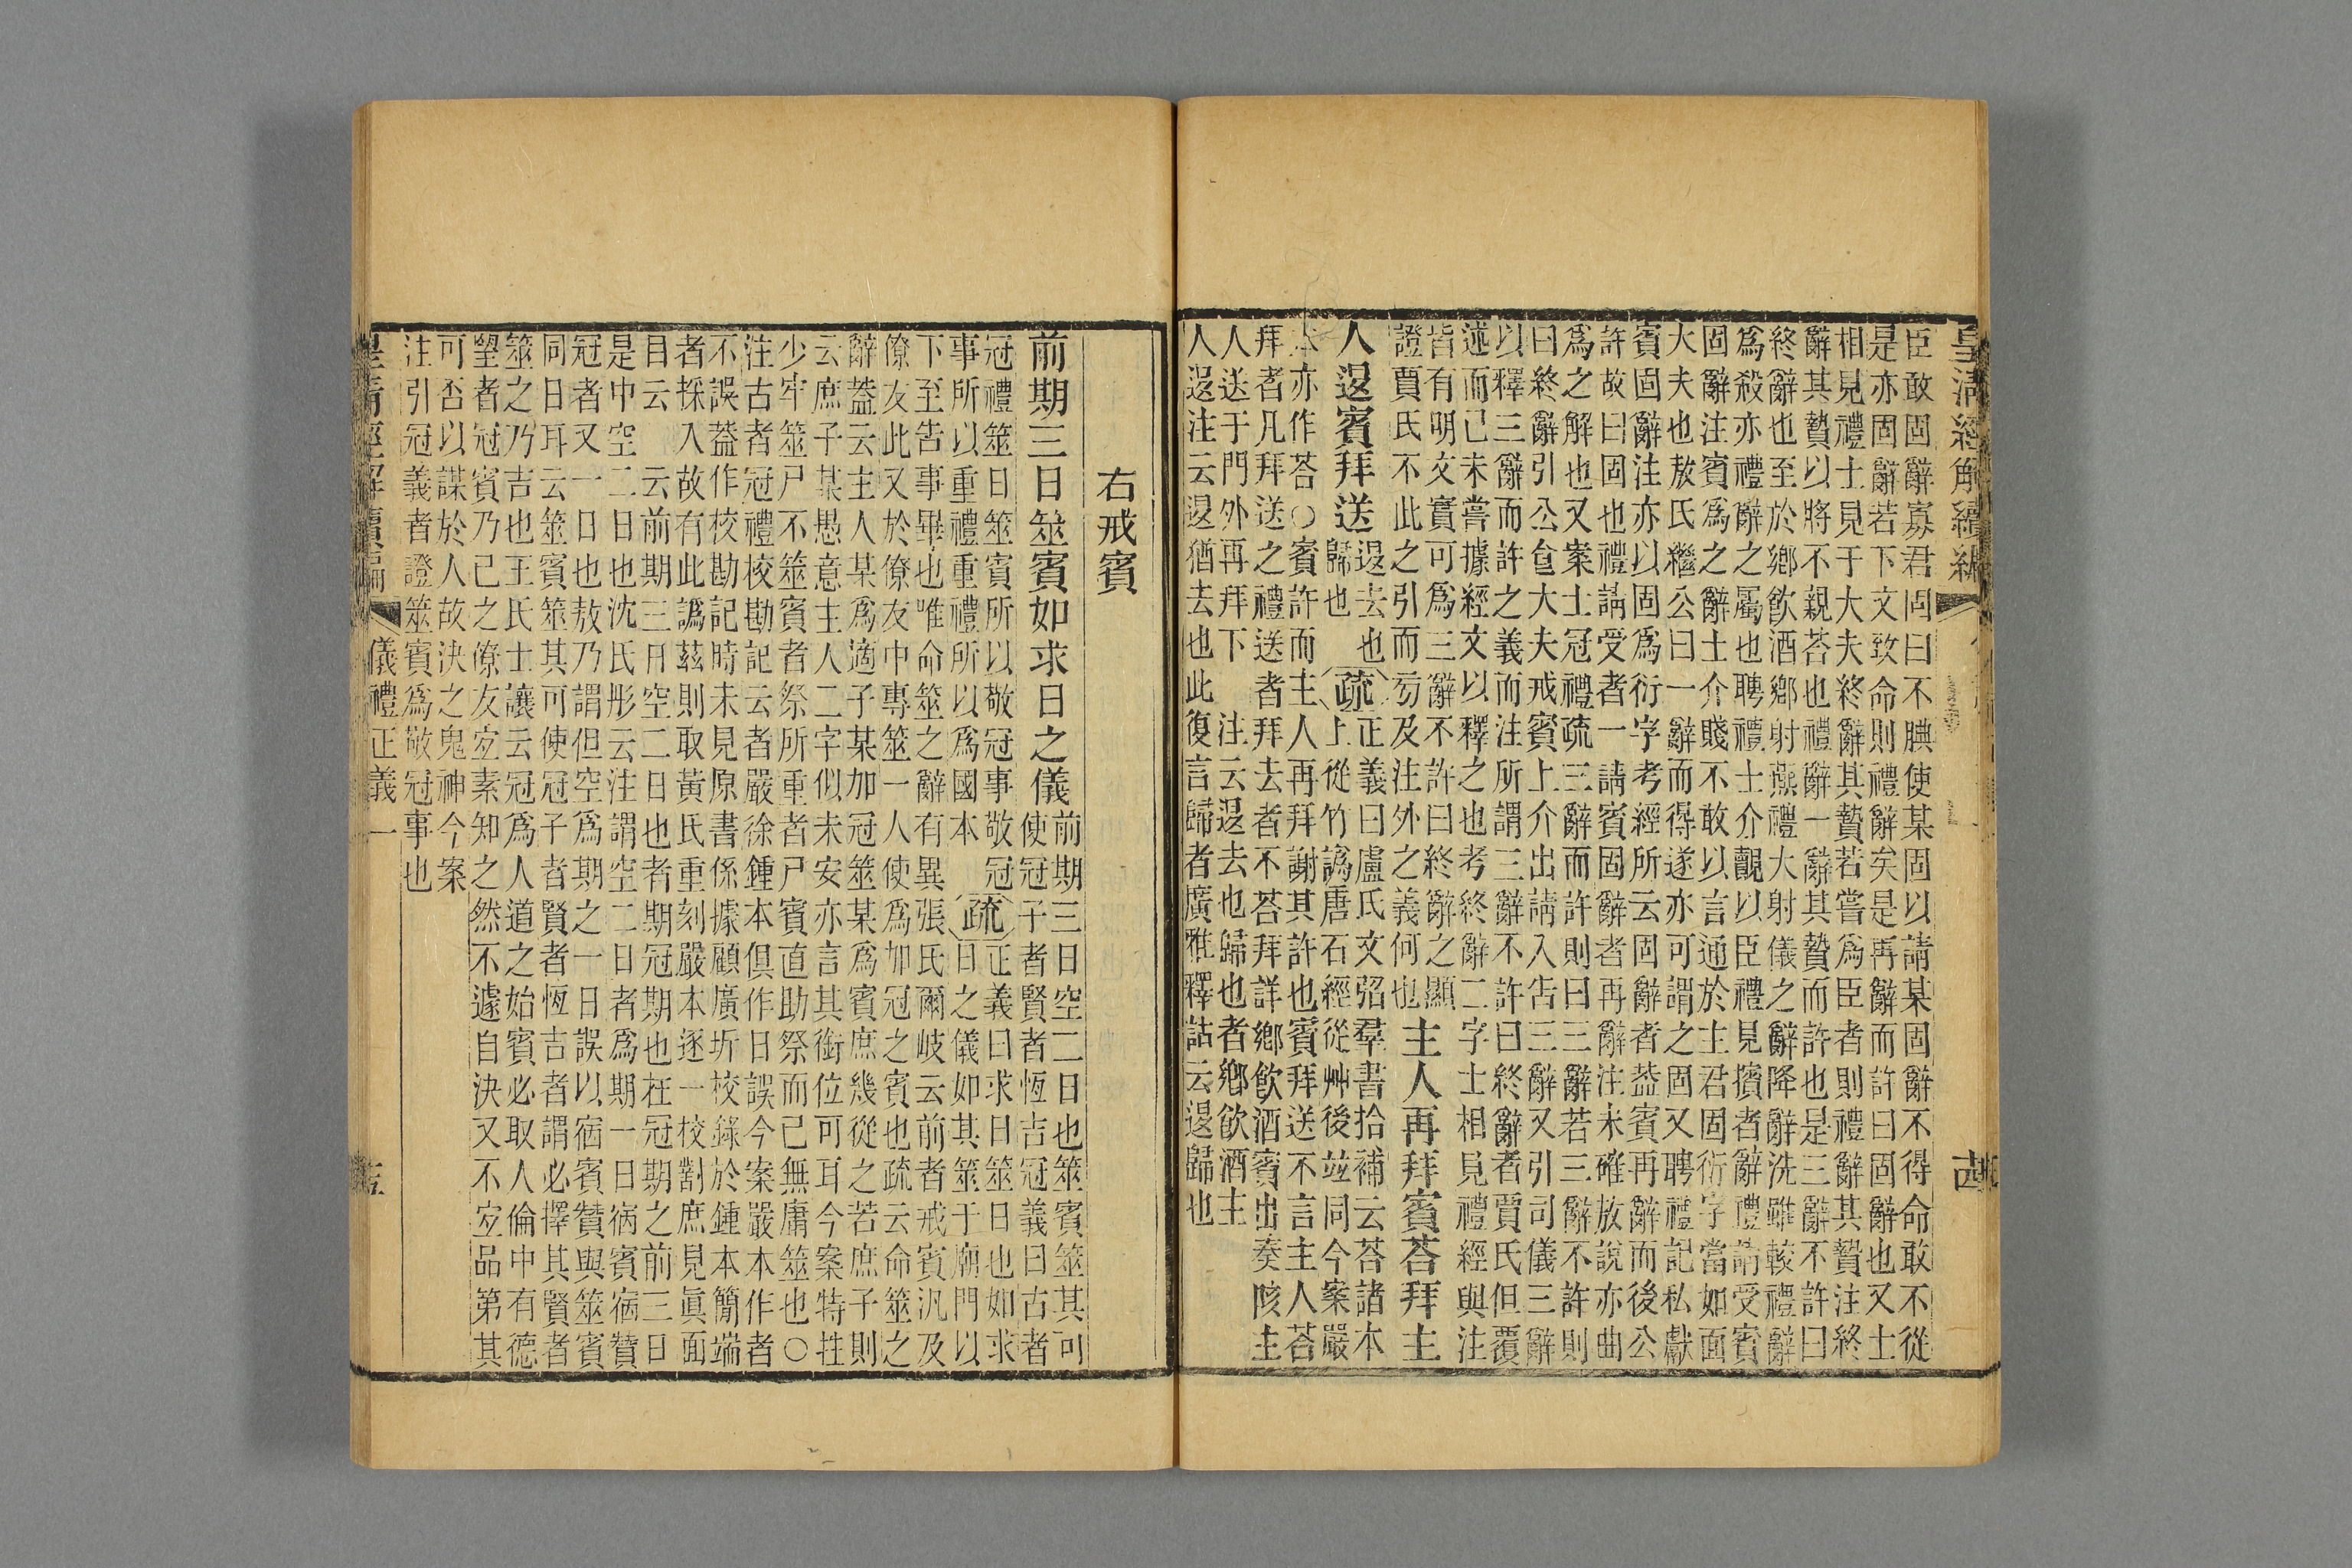 皇清經解續編
臣敢固辭寡君固曰不腆使某固以請某固辭不得命敢不從
是亦固辭若下文致命則禮辭矣是再辭而許曰固辭也又士
相見禮士見于大夫終辭其贄若嘗爲臣者則禮辭其贄注終
辭其贄以將不親荅也禮辭一辭其贄而許也是三辭不許曰
終辭也至於鄉飮酒鄉射燕禮大射儀之辭降辭洗雖較禮辭
爲殺亦禮辭之屬也聘禮士介覿以臣禮見擯者辭禮請受賓
固辭注賓爲之辭士介賤不敢以言通於主君固衍字當如面
大夫也敖氏繼公曰一辭而得遂亦可謂之固又聘禮記私獻
賓固辭注亦以固爲衍字考經所云固辭者葢賓再辭而後公
許故曰固也禮請受者一請賓固辭者再辭注未確放說亦曲
爲之解也又案士冠禮疏三辭而許則曰三辭若三辭不許則
曰終辭引公食大夫戒賓上介出請入告三辭又引司儀三辭
以釋三辭而許之義而注所謂三辭不許曰終辭者賈氏但覆
述而已未嘗據經文以釋之也考終辭二字士相見禮經與注
皆有明文實可爲三辭不許曰終辭之顯
證賈氏不此之引而旁及注外之義何也
主人再拜賓荅拜主
人退賓拜送
退去也
歸也
疏
正義曰盧氏文弨羣書拾補云荅諸本
上從竹譌唐石經從艸後竝同今案嚴
本亦作荅○賓許而主人再拜謝其許也賓拜送不言主人荅
拜者凡拜送之禮送者拜去者不荅拜詳鄉飮酒賓出奏陔主
人送于門外再拜下 注云退去也歸也者鄉飮酒主
人退注云退猶去也此復言歸者廣雅釋詁云退歸也
右戒賓
前期三日筮賓如求日之儀
前期三日空二日也筮賓筮其可
使冠子者賢者恆吉冠義曰古者
冠禮筮日筮賓所以敬冠事敬冠
事所以重禮重禮所以爲國本
疏
正義曰求日筮日也如求
日之儀如其筮于廟門以
下至告事畢也唯命筮之辭有異張氏爾岐云前者戒賓汎及
僚友此又於僚友中專筮一人使爲加冠之賓也疏云命筮之
辭葢云主人某爲適子某加冠筮某爲賓庶幾從之若庶子則
云庶子某愚意主人二字似未安亦言其銜位可耳今案特牲
少牢筮尸不筮賓者祭所重者尸賓直助祭而已無庸筮也○
注古者冠禮校勘記云者嚴徐鍾本俱作日誤今案嚴本作者
不誤葢作校勘記時未見原書係據顧廣圻校錄於鍾本簡端
者採入故有此譌茲則取黃氏重刻嚴本逐一校對庶見眞面
目云 云前期三日空二日也者期冠期也在冠期之前三日
是中空二日也沈氏彤云注謂空二日者爲期一日宿賓宿贊
冠者又一日也敖乃謂但空爲期之一日誤以宿賓贊與筮賓
同日耳云筮賓筮其可使冠子者賢者恆吉者謂必擇其賢者
筮之乃吉也王氏士讓云冠爲人道之始賓必取人倫中有德
望者冠賓乃己之僚友宐素知之然不遽自決又不宐品第其
可否以謀於人故決之鬼神今案
注引冠義者證筮賓爲敬冠事也
皇清經解續編 儀禮正義一